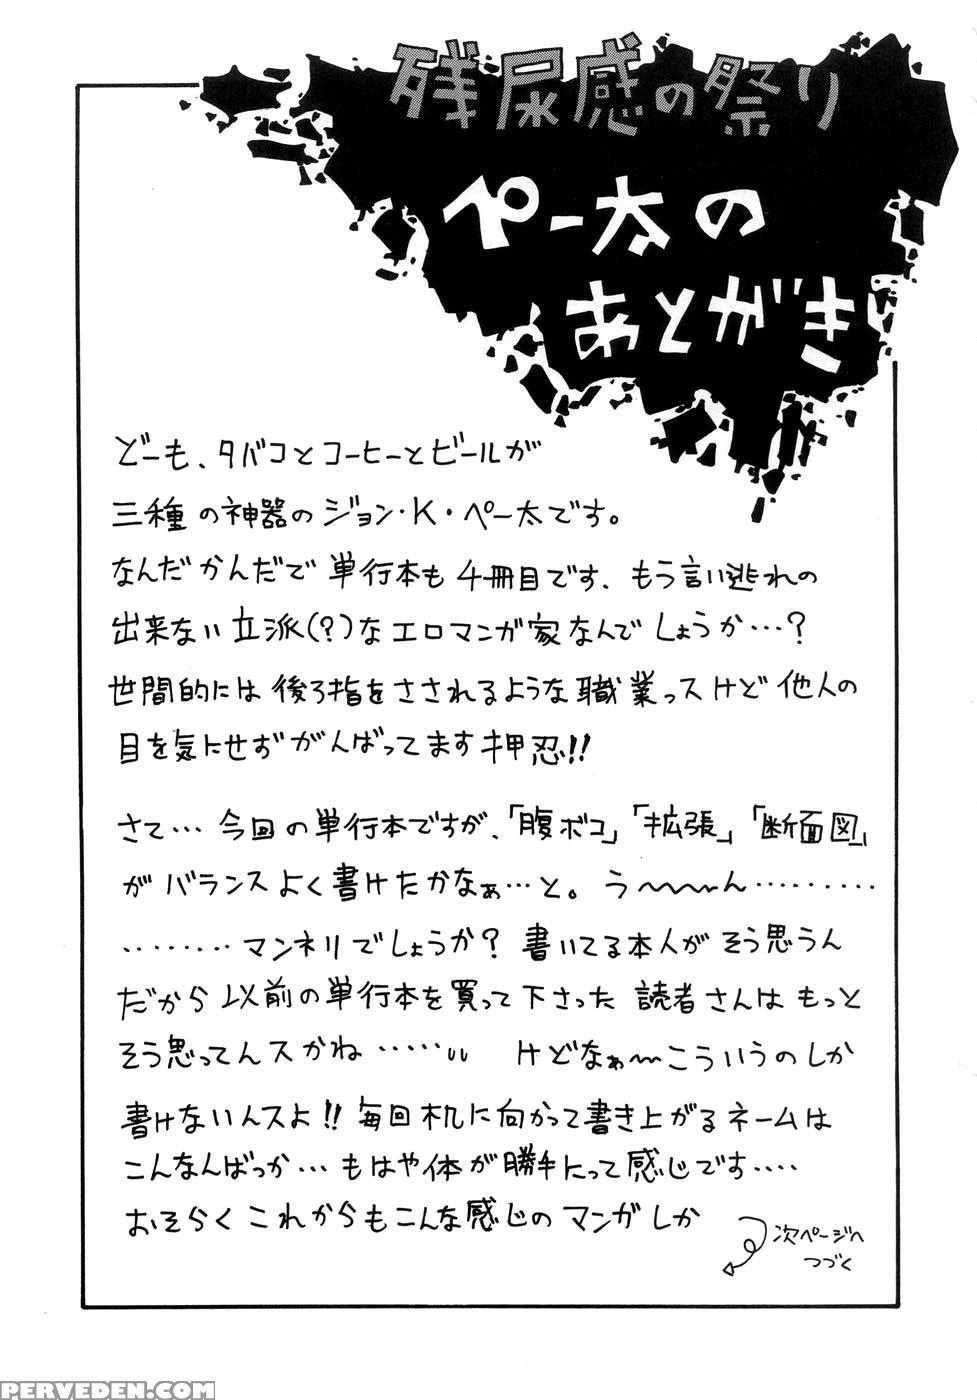 残尿感の祭り
ペー太の
あとがき
どーも、タバコとコーヒーとビールが
三種の神器のジョン・K・ペー太です。
なんだかんだで単行本も4冊目です、もう言い逃れの
出来ない立派(?)なエロマンガ家なんでしょうか…?
世間的には後ろ指をさされるような職業っスけど他人の
目を気にせずがんばってます押忍!!
さて…今回の単行本ですが、「腹ボコ」「拡張」「断面図」
がバランスよく書けたかなぁ…と。う〜〜〜ん………
………マンネリでしょうか?書いてる本人がそう思うん
だから以前の単行本を買って下さった読者さんはもっと
そう思ってんスかね……　けどなぁ〜こういうのしか
書けないんスよ!!毎回机に向かって書き上がるネームは
こんなんばっか…もはや体が勝手にって感じです‥‥
おそらくこれからもこんな感じのマンガしか
次ページへ
つづく
PERVEDEN.COM